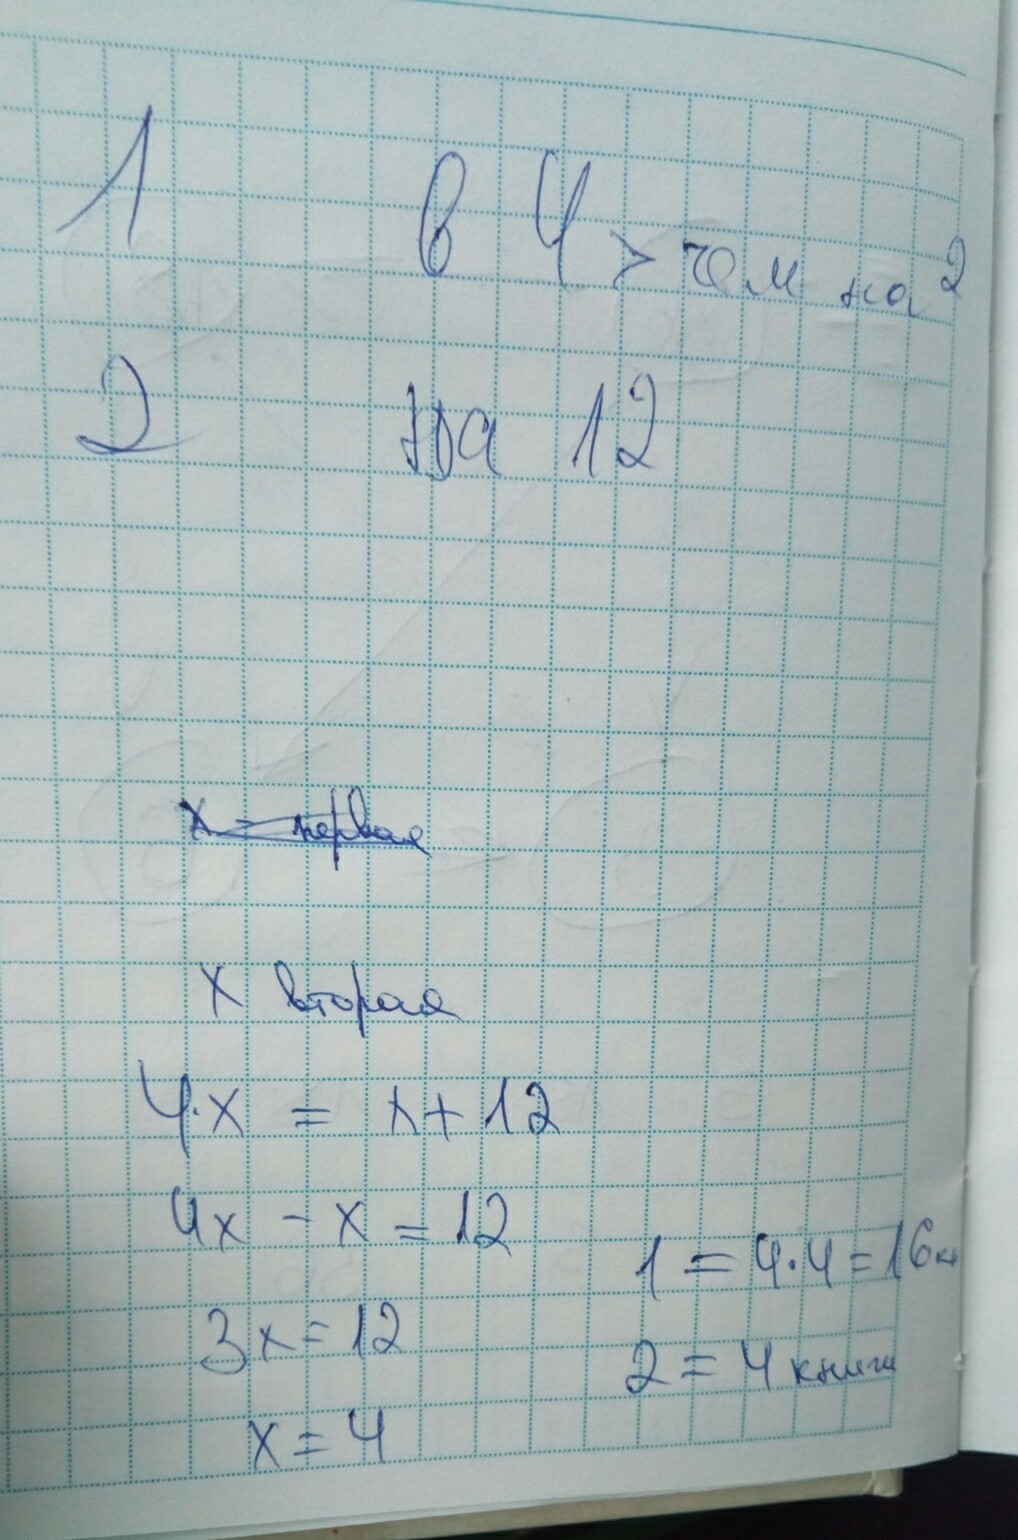 1 в 4 > чем на 2
2 на 12
x = первая
x вторая
4·x = x + 12
4x - x = 12
3x = 12
x = 4
1 = 4·4 = 16 к
2 = 4 книги